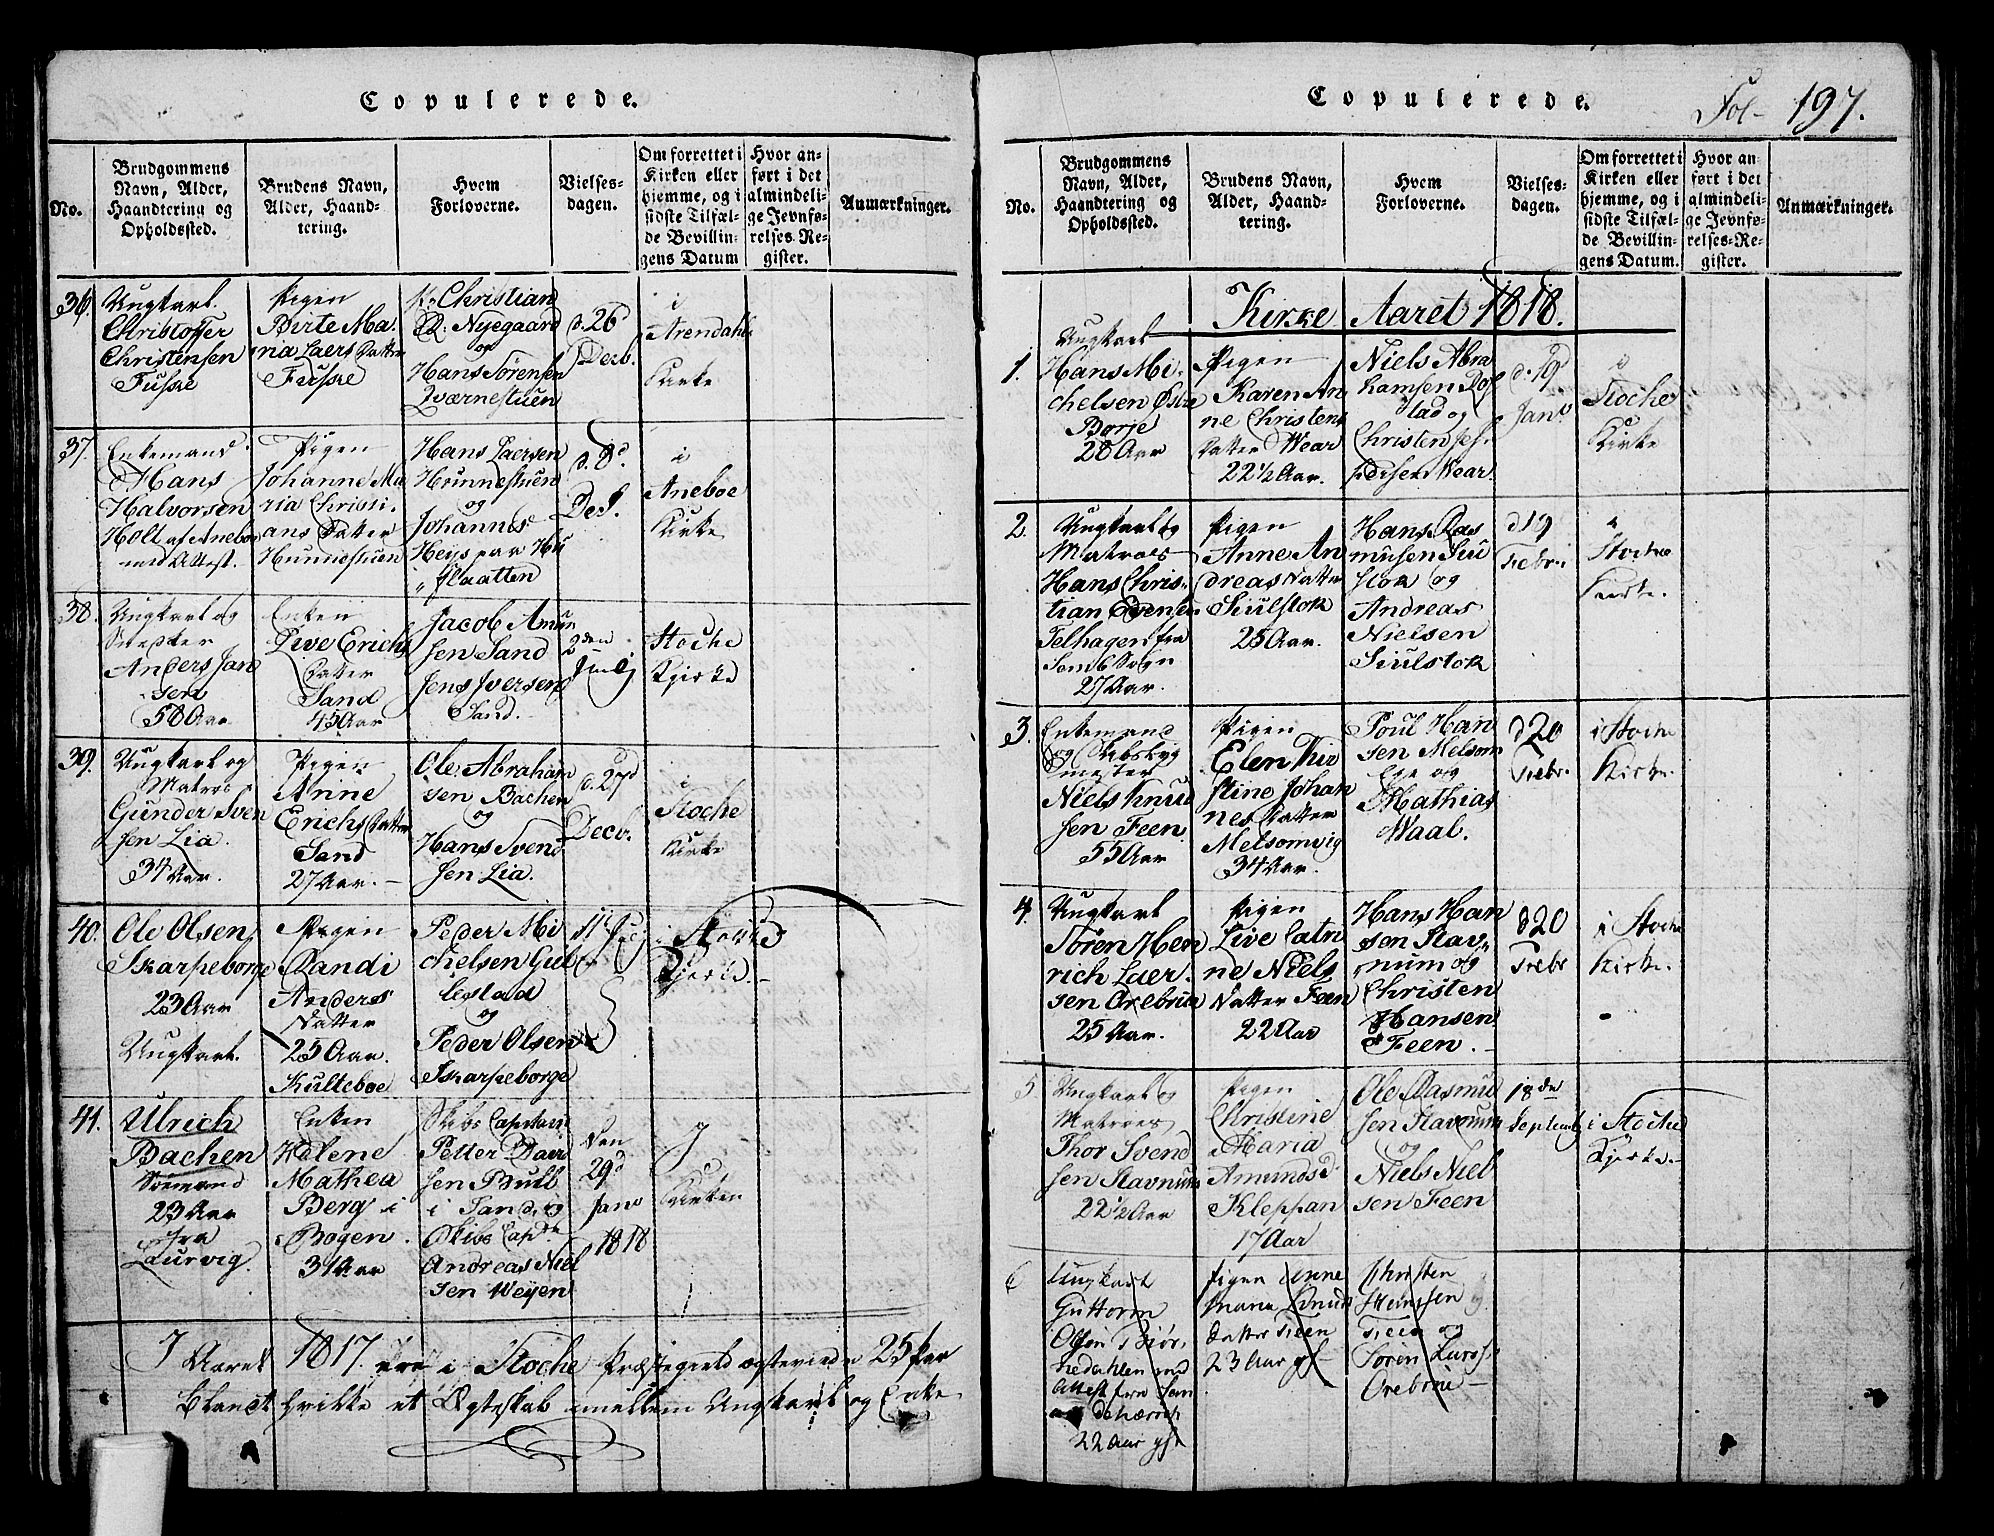 Copulerede.
No.
Brudgommens
Navn, Alder,
Haandtering og
Opholdssted.
Brudens Navn,
Alder, Haand-
tering.
Hvem
Forloverne.
Vielses-
dagen.
Om forrettet i
Kirken eller
hjemme, og i
sidste Tilfæl-
de Bevillin-
gens Datum
Hvor an-
ført i det
almindeli-
ge Jevnfø-
relses-Re-
gister.
Anmærkninger.
36.
Ungkarl.
Christoffer
Christensen
Fuske
Pigen
Birte Ma-
ria Laers Datter
Fuske
Christian
Nyegaard
og
Hans Sørensen
Qværnestuen
d. 26
Decb.
i
Arendahls
Kirke
37.
Enkemand
Hans
Halvorsen
Holt af Aneboe
med Attest.
Pigen
Johanne Ma
ria Christi-
ans Datter
Hunnestuen
Hans Laersen
Hunnestuen
og
Johannes
flaatten
d. 8d.
i
Aneboe
Kirke
38.
Ungkarl og
Snedker
Anders Jan
sen
58 Aar
Enken
Live Erichs
Datter
Sand
45 Aar
Jacob Amun
sen Sand
Jens Iversen
Sand.
2den
Stoche
Kjerke
39.
Ungkarl og
Matros
Gunder Sven
sen Lia.
34 Aar.
Pigen
Anne
Erichs Datter
Sand
27 Aar.
Ole Abraham
sen Bachen
og
Hans Svend
sen Lia.
d. 27d
Decbr.
i
Stoche
Kirke
40.
Ole Olsen
Skarpeborge
23 Aar
Ungkarl.
Pigen
Randi
Anders
Datter
25 Aar.
Kulteboe
Peder Mi
chelsen Gul
lestad
og
Peder Olsen
Skarpeborge
i Stokke
41.
Ulrich
Bachen
Søemand
23 Aar
fra
Laurvig.
Enken
Helene
Mathea
Berg i
Bogen.
31 Aar
Skibs Capitain
Petter Dani
sen Bull
i Sand, og
Skibs Capt.
Andreas Niel
sen Weyen
Den
29d
Jan
1818
J
Kirken
J Aaret 1817. ere i Stoche Præstegield ægteviede 25 Par
blandt hvilke et Ægteskab imellem Ungkarl og Enke
Copulerede.
Fol- 197.
No.
Brudgommens
Navn, Alder,
Haandtering og
Opholdssted.
Brudens Navn,
Alder, Haand-
tering.
Hvem
Forloverne.
Vielses-
dagen.
Om forrettet i
Kirken eller
hjemme, og i
sidste Tilfæl-
de Bevillin-
gens Datum.
Hvor an-
ført i det
almindeli-
ge Jevnfø-
relses-Re-
gister.
Anmærkninger.
Kirke Aaret 1818.
1.
Ungkarl
Hans Mi-
chelsen Østre
Borje
28 Aar
Pigen
Karen An
ne Christens
Datter Wear
22 1/2 Aar.
Niels Abra
hamsen Rof
stad og
Christen Jes-
persen Wear.
d. 19d
Jan.
i
Stoche
Kirke
2.
Ungkarl og
Matroes
Hans Chris-
tian Evensen
Felhagen fra
Sogn
27 Aar.
Pigen
Anne An
dreas Datter
Siulstok
25 Aar.
Hans Ras
musen Siu
lstok og
Andreas
Nielsen
Siulstok
d 19
Febr.
Stoche
Kirke.
3.
Enkemand
og Skibsbyg
mester
Niels Knud
sen Feen
55 Aar
Pigen
Elen Kir
stine Johan
nes Datter
Melsomvig
34 Aar.
Poul Han
sen Melsom
og
Mathias
Waal.
d 20
Febr.
i Stoche
Kirke.
4.
Ungkarl
Søren Hen
rich Laer-
sen Orebrue
25 Aar.
Pigen
Live Catri
ne Niels
Datter Feen
22 Aar
Hans Han
sen Stav-
num og
Christen
Hansen
Feen.
d 20
Febr
i Stoche
Kirke.
5
Ungkarl og
Matroes
Thor Svend
sen Stavnum
22 1/2 Aar
Pigen
Christine
Maria
Amundsd.
Kleppan
17 Aar
Ole Rasmud
sen Stavnum
og
Niels Niel
sen Feen
18de
Septemb
i Stoche
Kjerke.
6
Ungkarl
Guttorm
Olsen Biør-
nedahlen med
Attest fra
22 Aar gl.
Pigen Anne
Maria Knuds
datter Feen
23 Aar gl.
Christen
Feen og
Søren Lars.
Orebrue